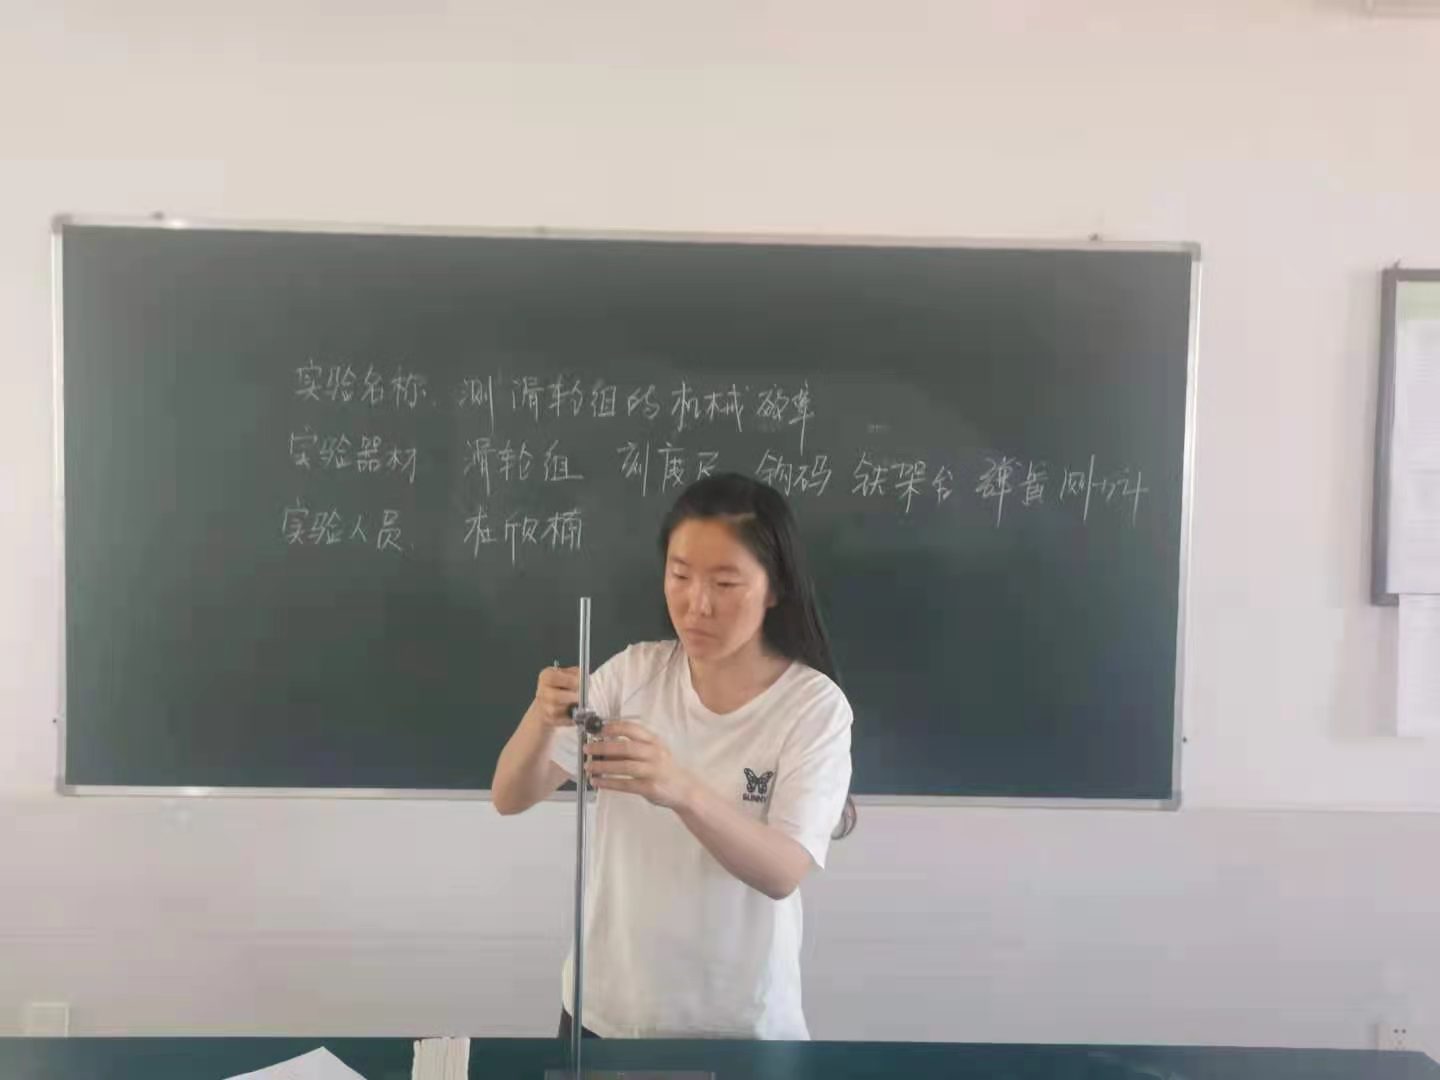 实验名称. 测滑轮组的机械效率
实验器材 滑轮组 刻度尺 钩码 铁架台 弹簧测力计
实验人员. 杜欣楠
SUNNY